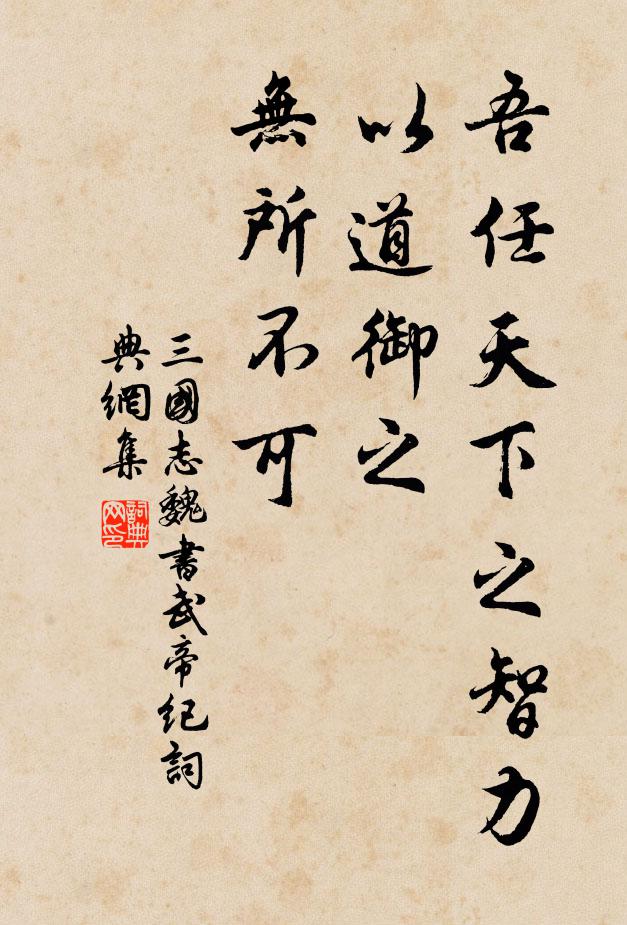 吾任天下之智力
以道御之
無所不可
三國志魏書武帝紀詞
典網集
詞典网印